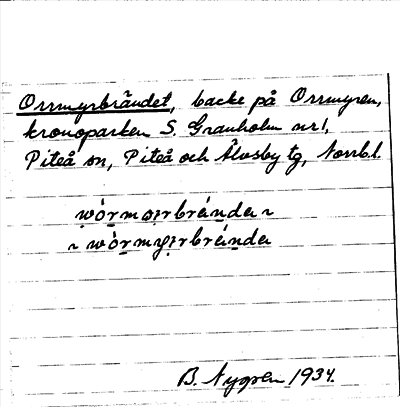 Orrmyrbrändet, backe på Orrmyren,
kronoparken S. Granholm nr 1,
Piteå sn, Piteå och Älvsby tg, Norrb.l.
wòrmọrbrénda ~
~ wòrmyrbrénda
B. Nygren 1934.